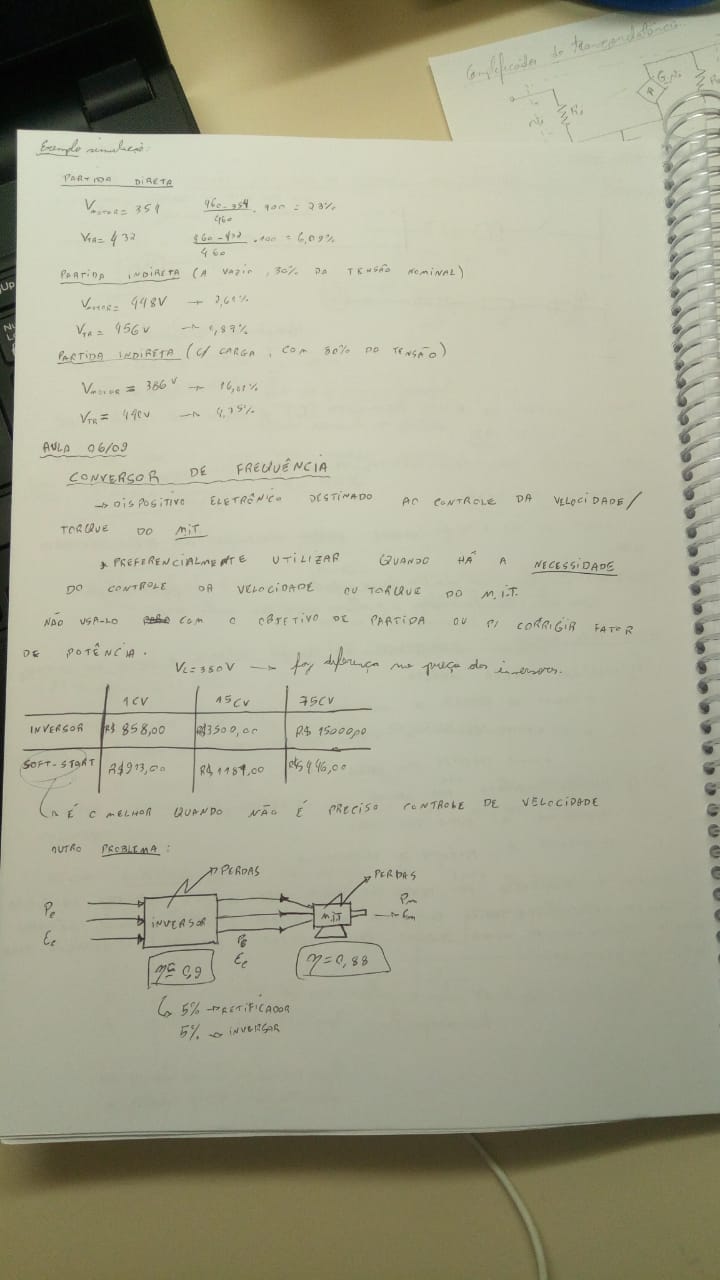 Amplificador de transcondutância
Ri
Exemplo simulação:
PARTIDA DIRETA
VMOTOR = 354 460-354/460 . 100 = 23%
VTR = 432 460-432/460 . 100 = 6,09%
PARTIDA INDIRETA (A VAZIO, 30% DA TENSÃO NOMINAL)
VMOTOR = 448V → 2,61%
VTR = 456V → 0,87%
PARTIDA INDIRETA (C/ CARGA, COM 80% DO TENSÃO)
VMOTOR = 386V → 16,09%
VTR = 440V → 4,35%
AULA 06/09
CONVERSOR DE FREQUÊNCIA
→ DISPOSITIVO ELETRÔNICO DESTINADO AO CONTROLE DA VELOCIDADE/
TORQUE DO MIT
* PREFERENCIALMENTE UTILIZAR QUANDO HÁ A NECESSIDADE
DO CONTROLE DA VELOCIDADE OU TORQUE DO M.I.T.
NÃO USA-LO COM O OBJETIVO DE PARTIDA OU P/ CORRIGIR FATOR
DE POTÊNCIA.
VL=380V → faz diferença no preço dos inversores.
1CV 15CV 75CV
INVERSOR R$ 858,00 R$3500,00 R$ 15000,00
SOFT-START R$913,00 R$ 1189,00 R$5446,00
→ É O MELHOR QUANDO NÃO É PRECISO CONTROLE DE VELOCIDADE
OUTRO PROBLEMA:
PERDAS PERDAS
Pe INVERSOR M.I.T Pm
Ee Pe Em
Ee
η = 0,9 η = 0,88
↳ 5% → RETIFICADOR
5% → INVERSOR